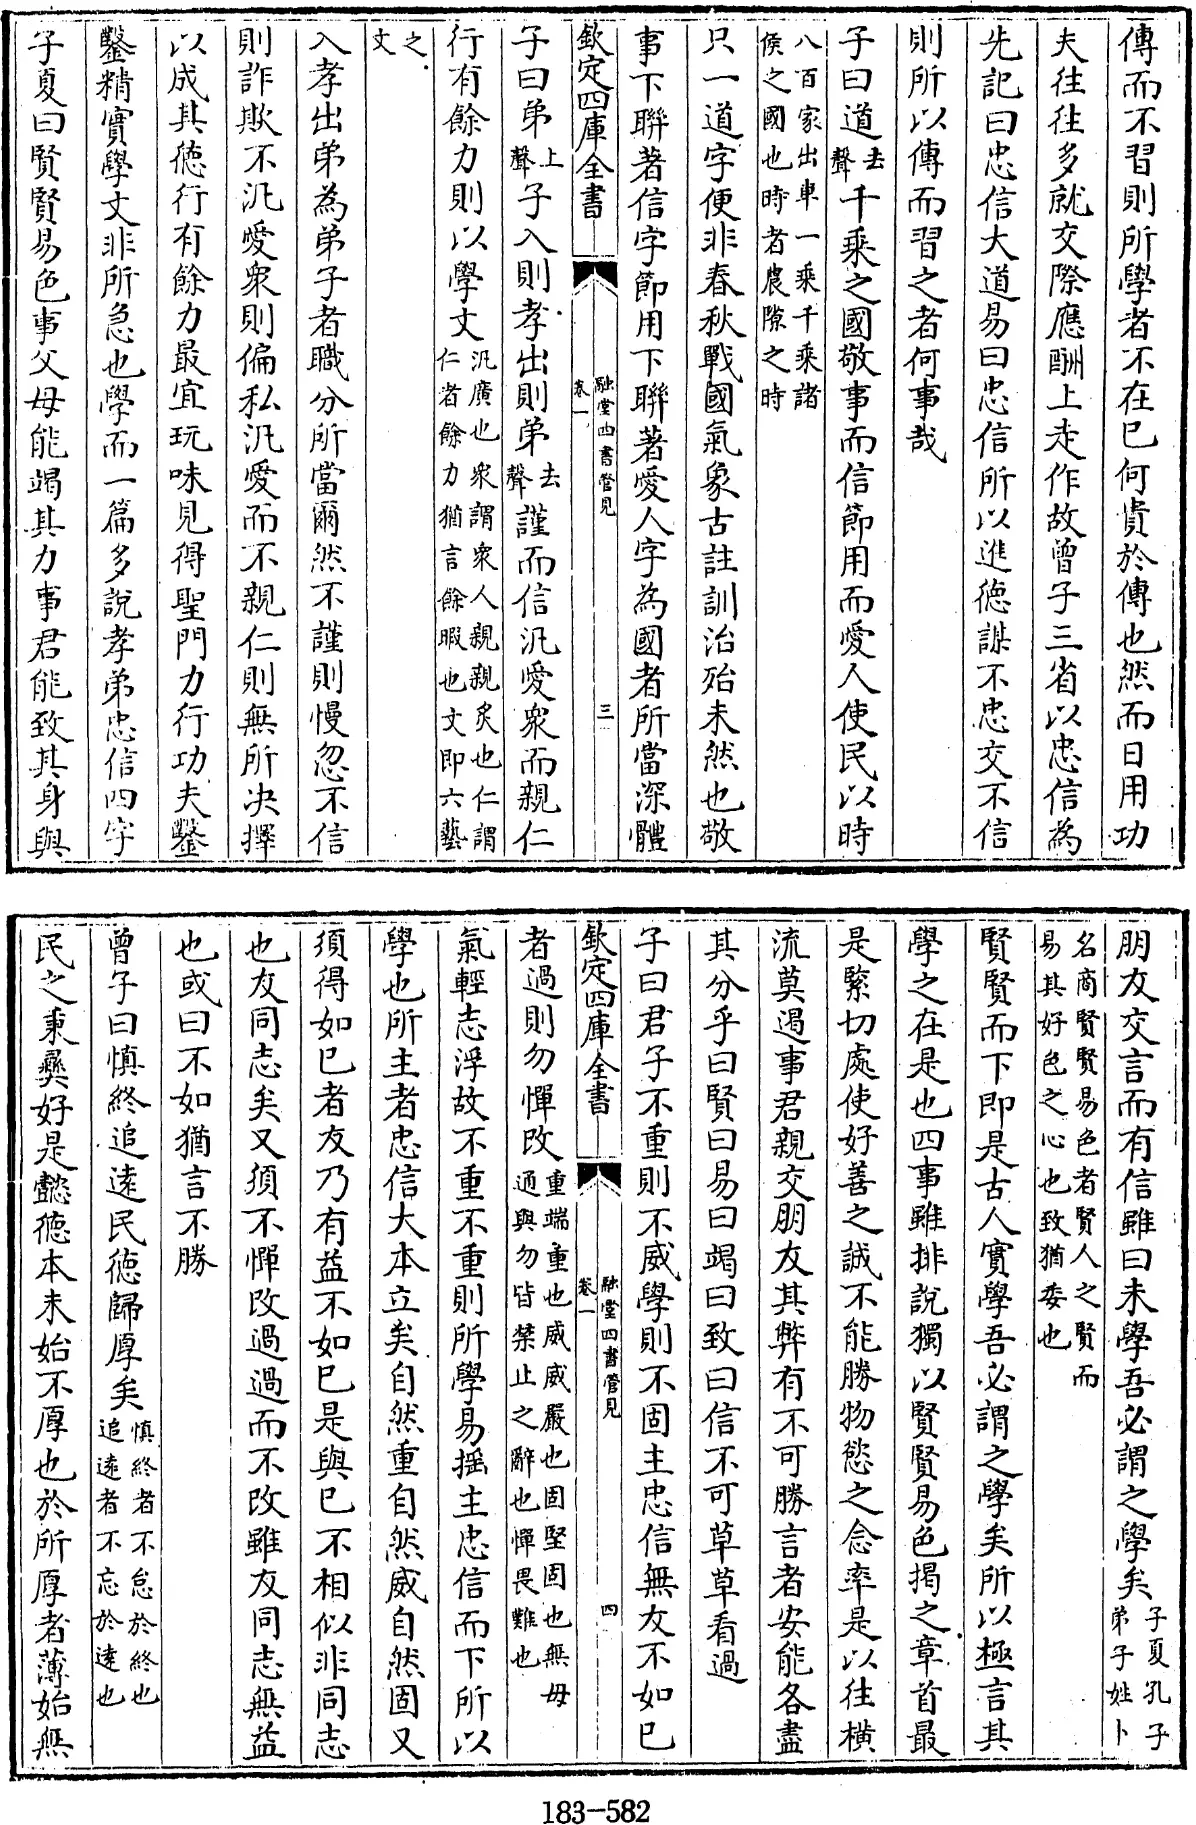 傳而不習則所學者不在已何貴於傳也然而日用功
夫往往多就交際應酬上走作故曾子三省以忠信為
先記曰忠信大道易曰忠信所以進德謀不忠交不信
則所以傳而習之者何事哉
子曰道去聲千乘之國敬事而信節用而愛人使民以時
八百家出車一乘千乘諸
侯之國也時者農隙之時
只一道字便非春秋戰國氣象古註訓治殆未然也敬
事下聯著信字節用下聯著愛人字為國者所當深體
欽定四庫全書
融堂四書管見
卷一
三
子曰弟上聲子入則孝出則弟去聲謹而信汎愛衆而親仁
行有餘力則以學文
汎廣也衆謂衆人親親炙也仁謂
仁者餘力猶言餘暇也文即六藝
之
文
入孝出弟為弟子者職分所當爾然不謹則慢忽不信
則詐欺不汎愛衆則偏私汎愛而不親仁則無所决擇
以成其德行有餘力最宜玩味見得聖門力行功夫鑿
鑿精實學文非所急也學而一篇多說孝弟忠信四字
子夏曰賢賢易色事父母能竭其力事君能致其身與
朋友交言而有信雖曰未學吾必謂之學矣
子夏孔子
弟子姓卜
名商賢賢易色者賢人之賢而
易其好色之心也致猶委也
賢賢而下即是古人實學吾必謂之學矣所以極言其
學之在是也四事雖排說獨以賢賢易色揭之章首最
是緊切處使好善之誠不能勝物慾之念率是以往橫
流莫遏事君親交朋友其弊有不可勝言者安能各盡
其分乎曰賢曰易曰竭曰致曰信不可草草看過
子曰君子不重則不威學則不固主忠信無友不如已
欽定四庫全書
融堂四書管見
卷一
四
者過則勿憚改
重端重也威威嚴也固堅固也無毋
通與勿皆禁止之辭也憚畏難也
氣輕志浮故不重不重則所學易搖主忠信而下所以
學也所主者忠信大本立矣自然重自然威自然固又
須得如已者友乃有益不如已是與已不相似非同志
也友同志矣又須不憚改過過而不改雖友同志無益
也或曰不如猶言不勝
曾子曰慎終追逺民德歸厚矣
慎終者不怠於終也
追逺者不忘於逺也
民之秉彞好是懿德本未始不厚也於所厚者薄始無
183-582